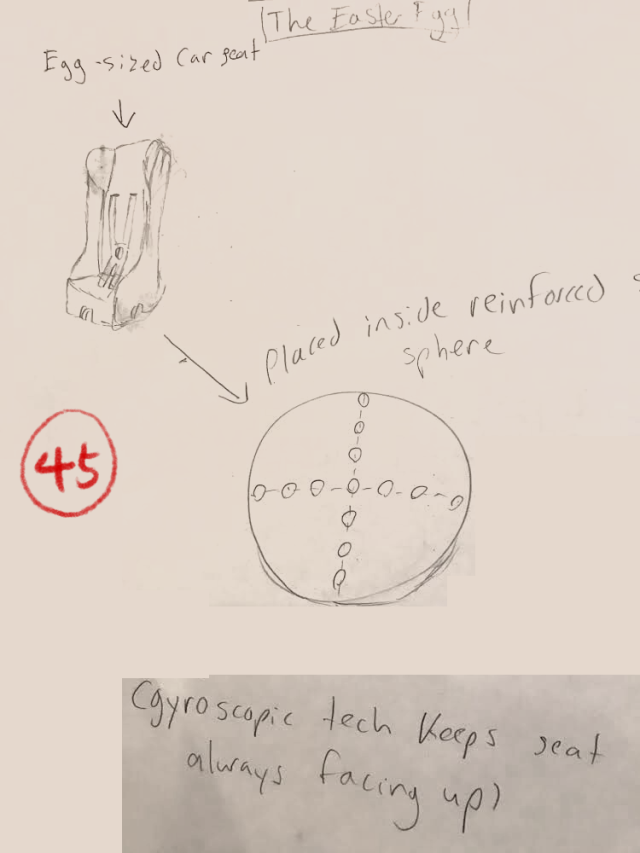 The Easter Egg
Egg-sized Car seat
Placed inside reinforced
sphere
45
(gyroscopic tech keeps seat
always facing up)